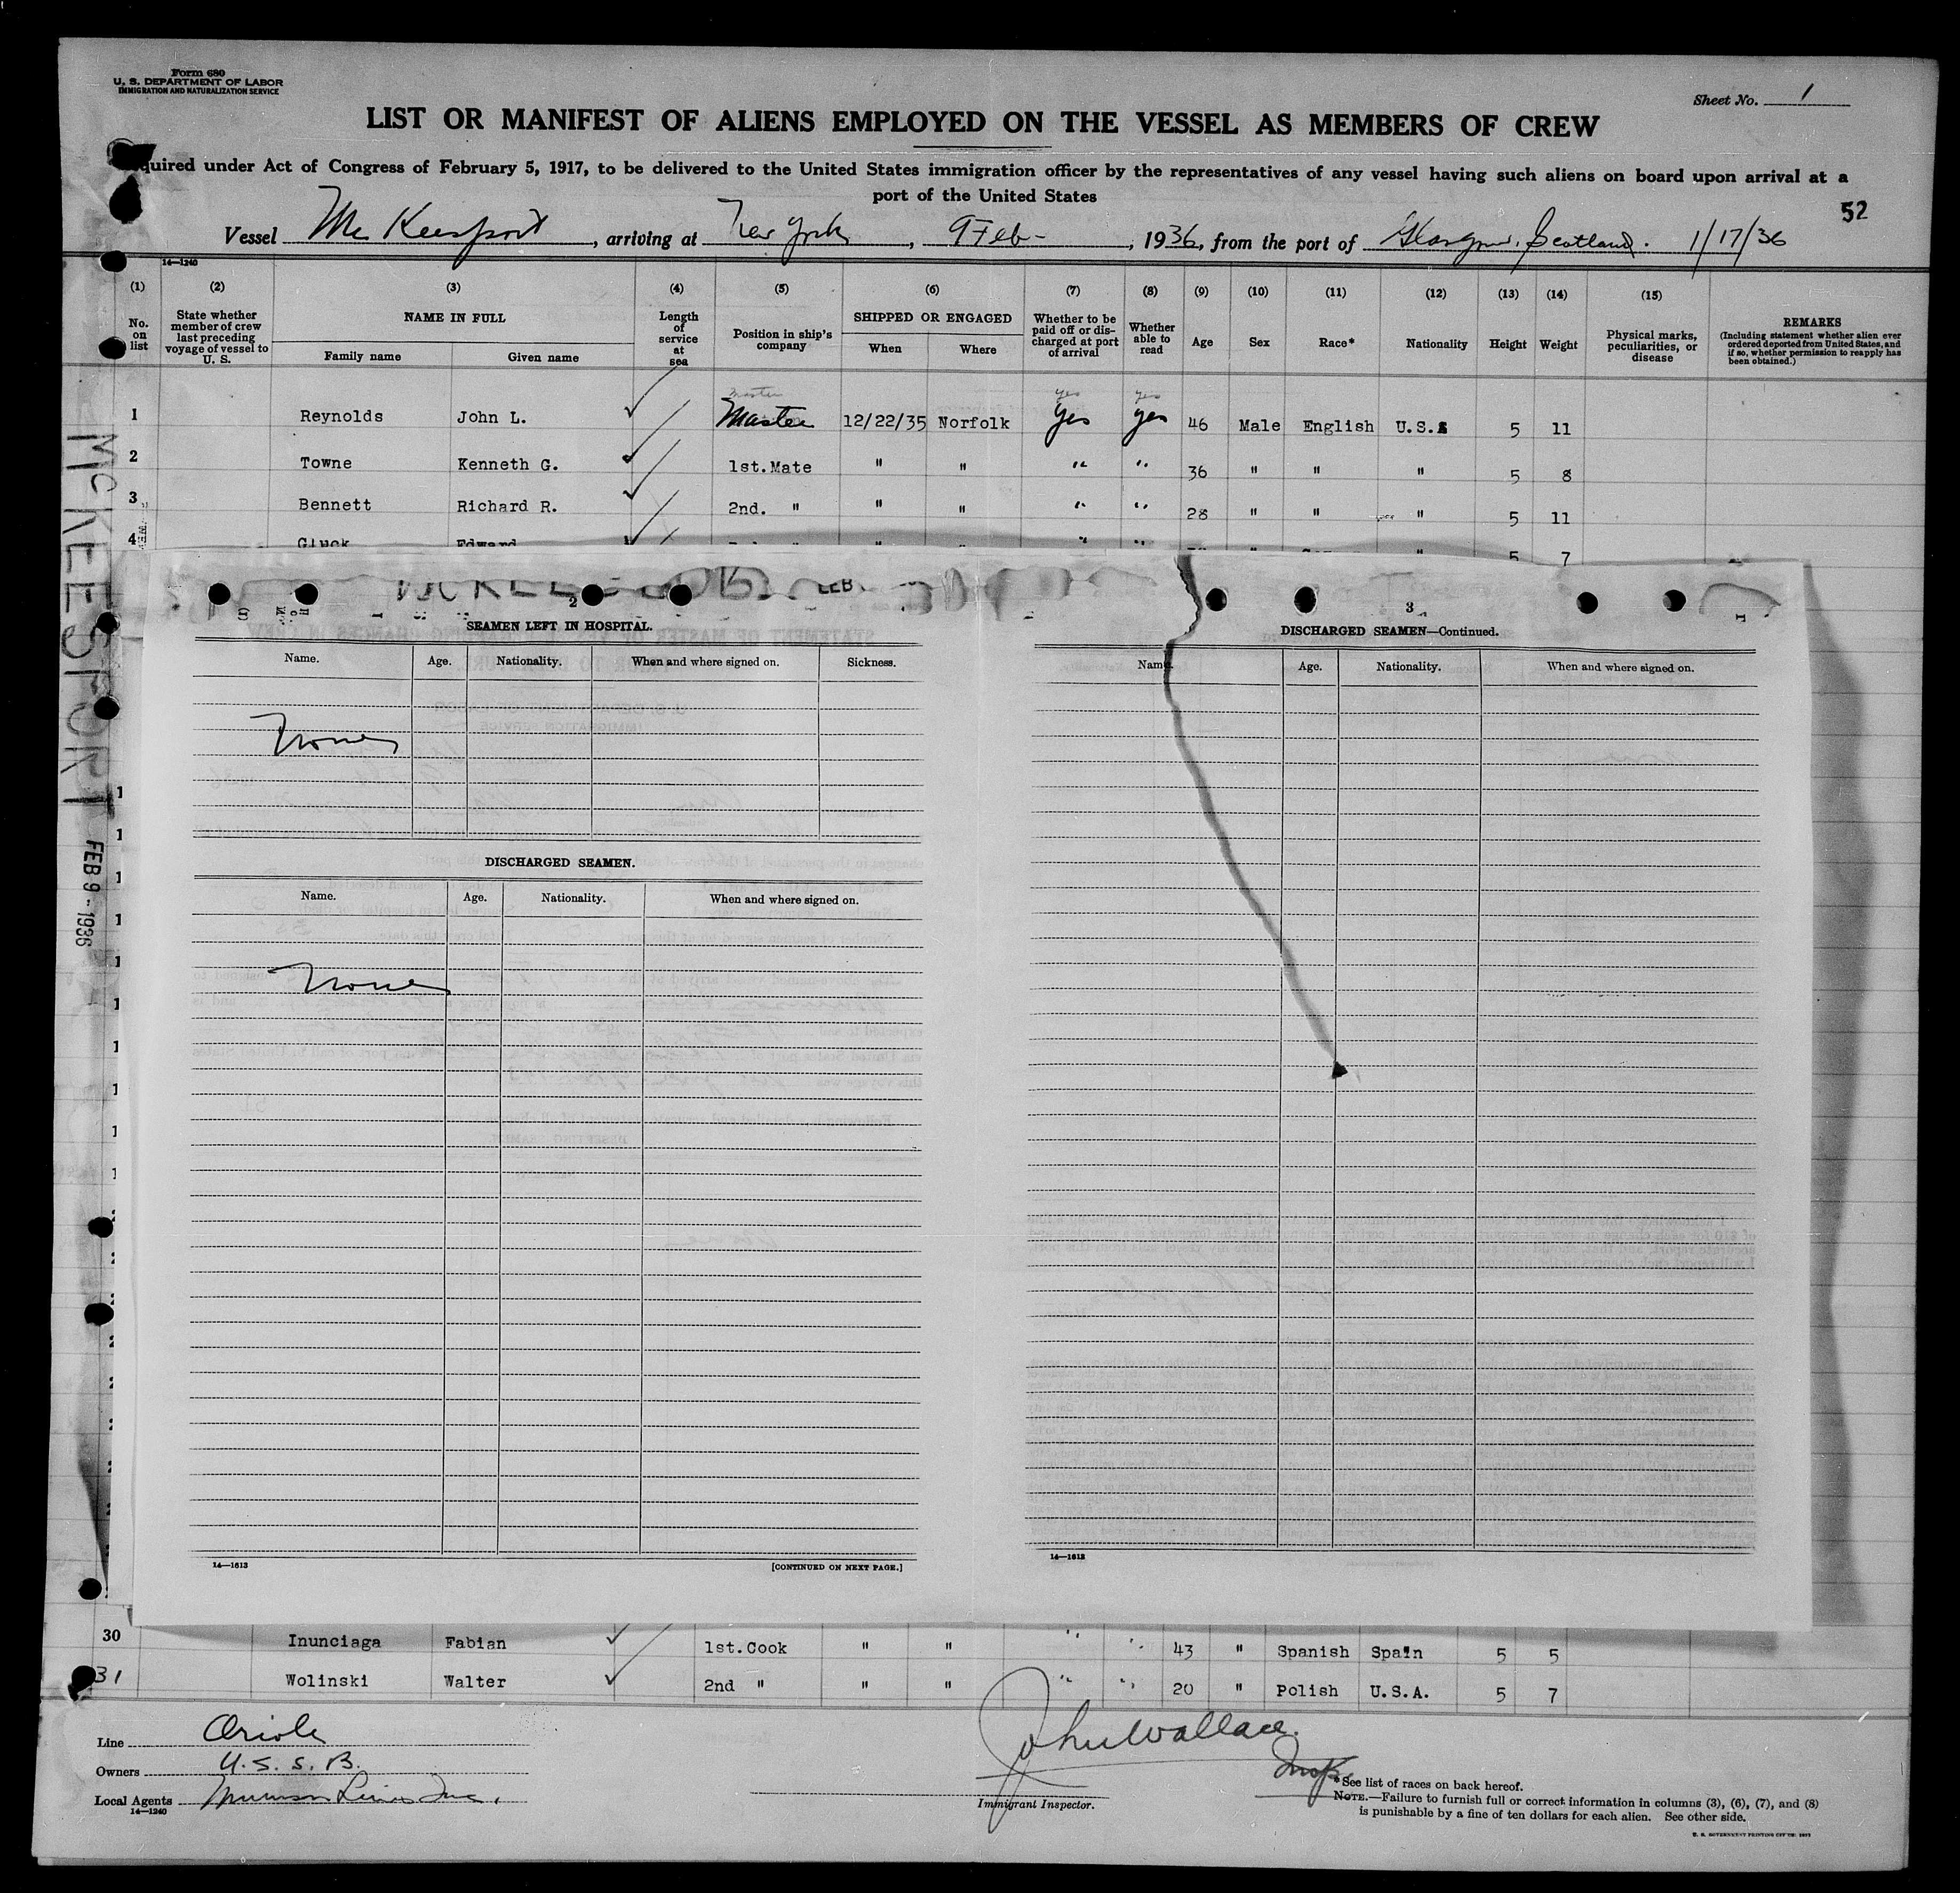 Form 680
U. S. DEPARTMENT OF LABOR
IMMIGRATION AND NATURALIZATION SERVICE
Sheet No. 1
LIST OR MANIFEST OF ALIENS EMPLOYED ON THE VESSEL AS MEMBERS OF CREW
quired under Act of Congress of February 5, 1917, to be delivered to the United States immigration officer by the representatives of any vessel having such aliens on board upon arrival at a
port of the United States
52
Vessel Mc Keesport, arriving at New York, 9 Feb-, 1936, from the port of Glasgow, Scotland. 1/17/36
14—1240
(1) (2) (3) (4) (5) (6) (7) (8) (9) (10) (11) (12) (13) (14) (15)
No. on list
State whether member of crew last preceding voyage of vessel to U. S.
NAME IN FULL
Family name Given name
Length of service at sea
Position in ship's company
SHIPPED OR ENGAGED
When Where
Whether to be paid off or discharged at port of arrival
Whether able to read
Age Sex Race* Nationality Height Weight
Physical marks, peculiarities, or disease
REMARKS
(Including statement whether alien ever ordered deported from United States, and if so, whether permission to reapply has been obtained.)
Master yes yes
1 Reynolds John L. Master 12/22/35 Norfolk yes yes 46 Male English U.S. 5 11
2 Towne Kenneth G. 1st.Mate " " " " 36 " " " 5 8
3 Bennett Richard R. 2nd. " " " " " 28 " " " 5 11
4 Gluck Edward 5 7
MCKEESPORT
FEB 9 - 1936
2
SEAMEN LEFT IN HOSPITAL.
Name. Age. Nationality. When and where signed on. Sickness.
None
DISCHARGED SEAMEN.
Name. Age. Nationality. When and where signed on.
None
14—1613
[CONTINUED ON NEXT PAGE.]
3
DISCHARGED SEAMEN—Continued.
Name. Age. Nationality. When and where signed on.
14—1613
30 Inunciaga Fabian 1st.Cook " " " " 43 " Spanish Spain 5 5
31 Wolinski Walter 2nd " " " " " 20 " Polish U.S.A. 5 7
Line Oriole
Owners U. S. S. B.
Local Agents Munson Line Inc.
14—1240
John Wallace.
Insp.
Immigrant Inspector.
*See list of races on back hereof.
NOTE.—Failure to furnish full or correct information in columns (3), (6), (7), and (8)
is punishable by a fine of ten dollars for each alien. See other side.